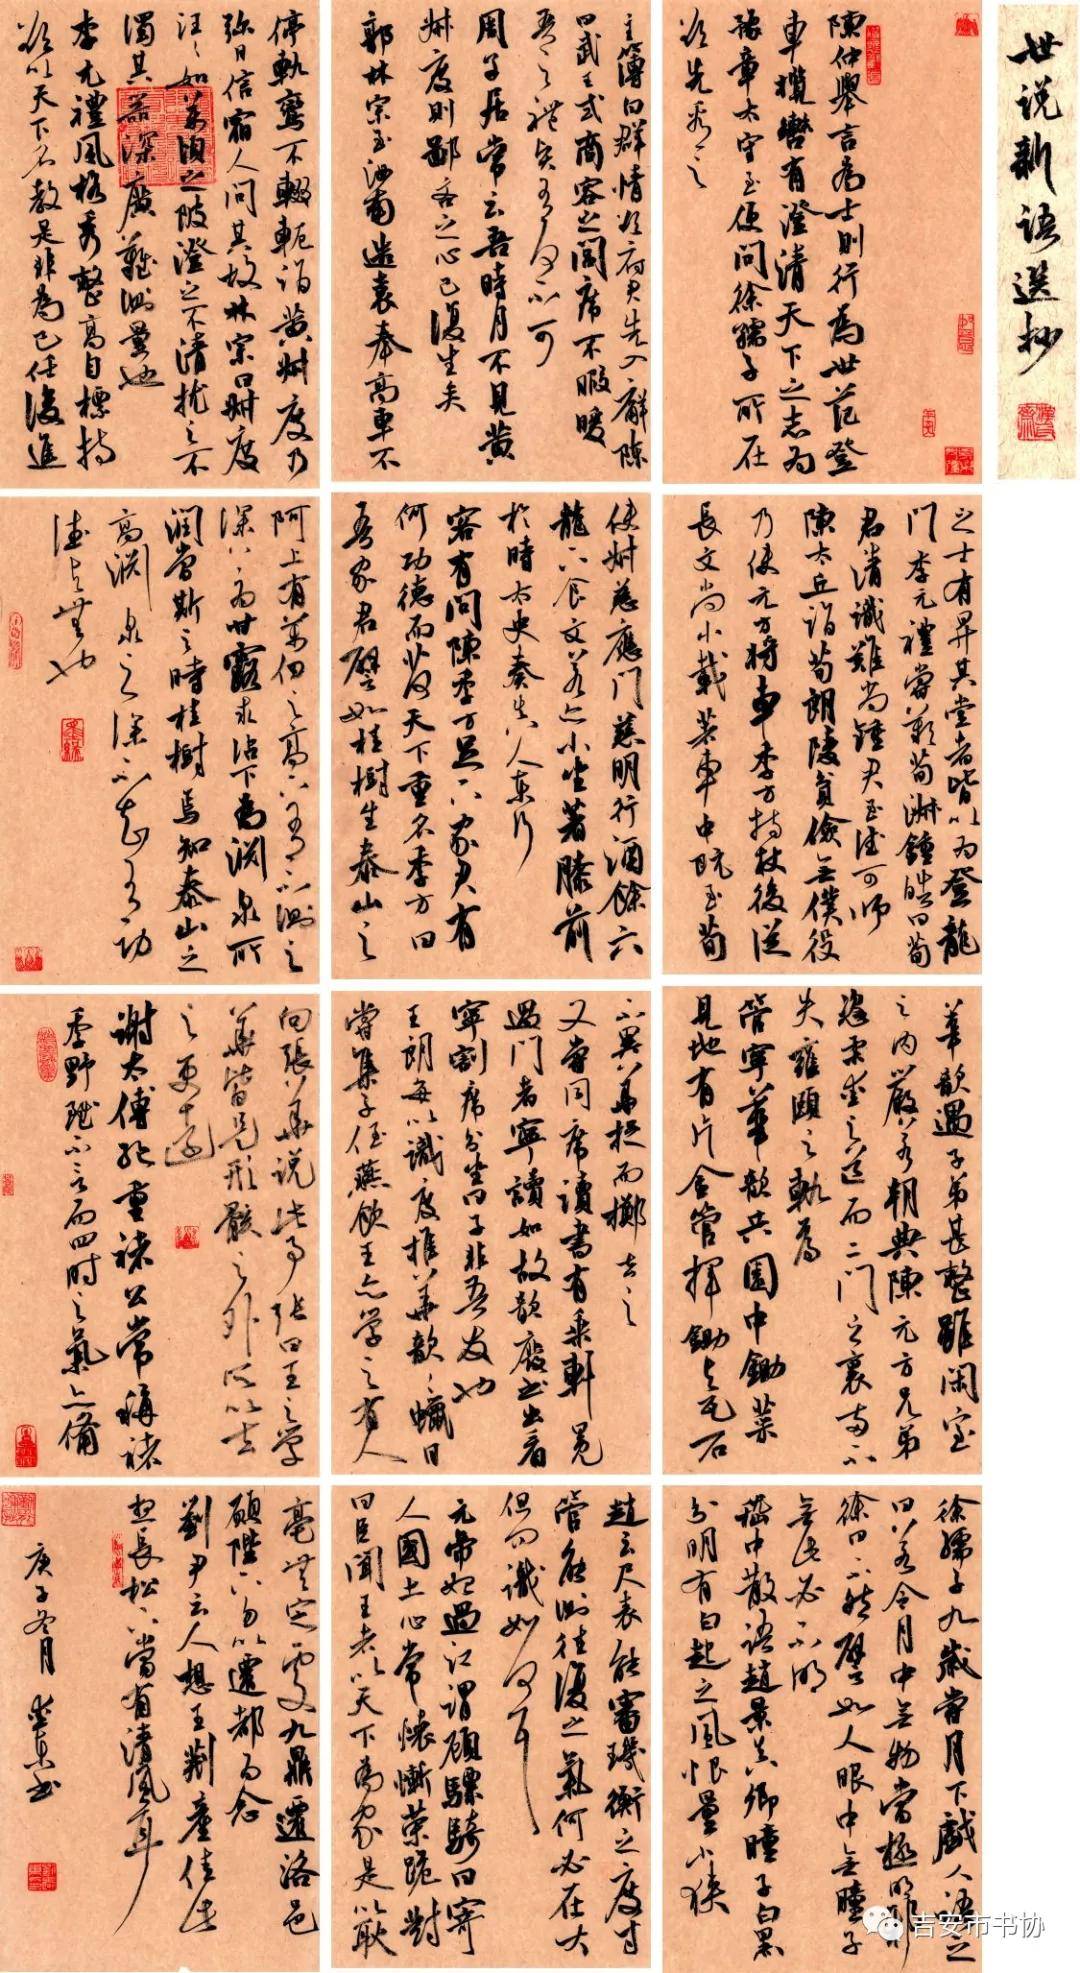 世说新语选抄
陳仲舉言為士則行為世范登
車攬轡有澄清天下之志為
豫章太守至便問徐孺子所在
欲先看之
主簿曰群情欲府君先入廨陳
曰武王式商容之閭席不暇暖
吾之禮賢有何不可
周子居常云吾時月不見黃
叔度則鄙吝之心已復生矣
郭林宗至汝南造袁奉高車不
停軌鸞不輟軛詣黃叔度乃
彌日信宿人問其故林宗曰叔度
汪汪如萬頃之陂澄之不清擾之不
濁其器深廣難測量也
李元禮風格秀整高自標持
欲以天下名教是非為己任後進
之士有昇其堂者皆以為登龍
門李元禮嘗歎荀淑鍾皓曰荀
君清識難尚鍾君至德可師
陳太丘詣荀朗陵貧儉無僕役
乃使元方將車季方持杖後從
長文尚小載著車中既至荀
使叔慈應門慈明行酒餘六
龍下食文若亦小坐著膝前
於時太史奏真人東行
客有問陳季方足下家君有
何功德而荷天下重名季方曰
吾家君譬如桂樹生泰山之
阿上有萬仞之高下有不測之
深上為甘露所沾下為淵泉所
潤當斯之時桂樹焉知泰山之
高淵泉之深不知有功
德與無也
華歆遇子弟甚整雖閑室
之內嚴若朝典陳元方兄弟
恣柔愛之道而二門之裏兩不
失雍熙之軌焉
管寧華歆共園中鋤菜
見地有片金管揮鋤與瓦石
不異華捉而擲去之
又嘗同席讀書有乘軒冕
過門者寧讀如故歆廢書出看
寧割席分坐曰子非吾友也
王朗每以識度推華歆歆蠟日
嘗集子侄燕飲王亦學之有人
向張華說此事張曰王之學
華皆是形骸之外所以去
之更遠
謝太傅絕重褚公常稱褚
季野雖不言而四時之氣亦備
徐孺子九歲嘗月下戲人語之
曰若令月中無物當極明邪
徐曰不然譬如人眼中無瞳子
無此必不明
嵇中散語趙景真卿瞳子白黑
分明有白起之風恨量小狹
趙云尺表能審璣衡之度寸
管能測往復之氣何必在大
但問識如何耳
元帝始過江謂顧驃騎曰寄
人國土心常懷慚榮跪對
曰臣聞王者以天下為家是以耿
亳無定處九鼎遷洛邑
願陛下勿以遷都為念
劉尹云人想王荊產佳此
想長松下當有清風耳
庚子冬月
吉安市书协